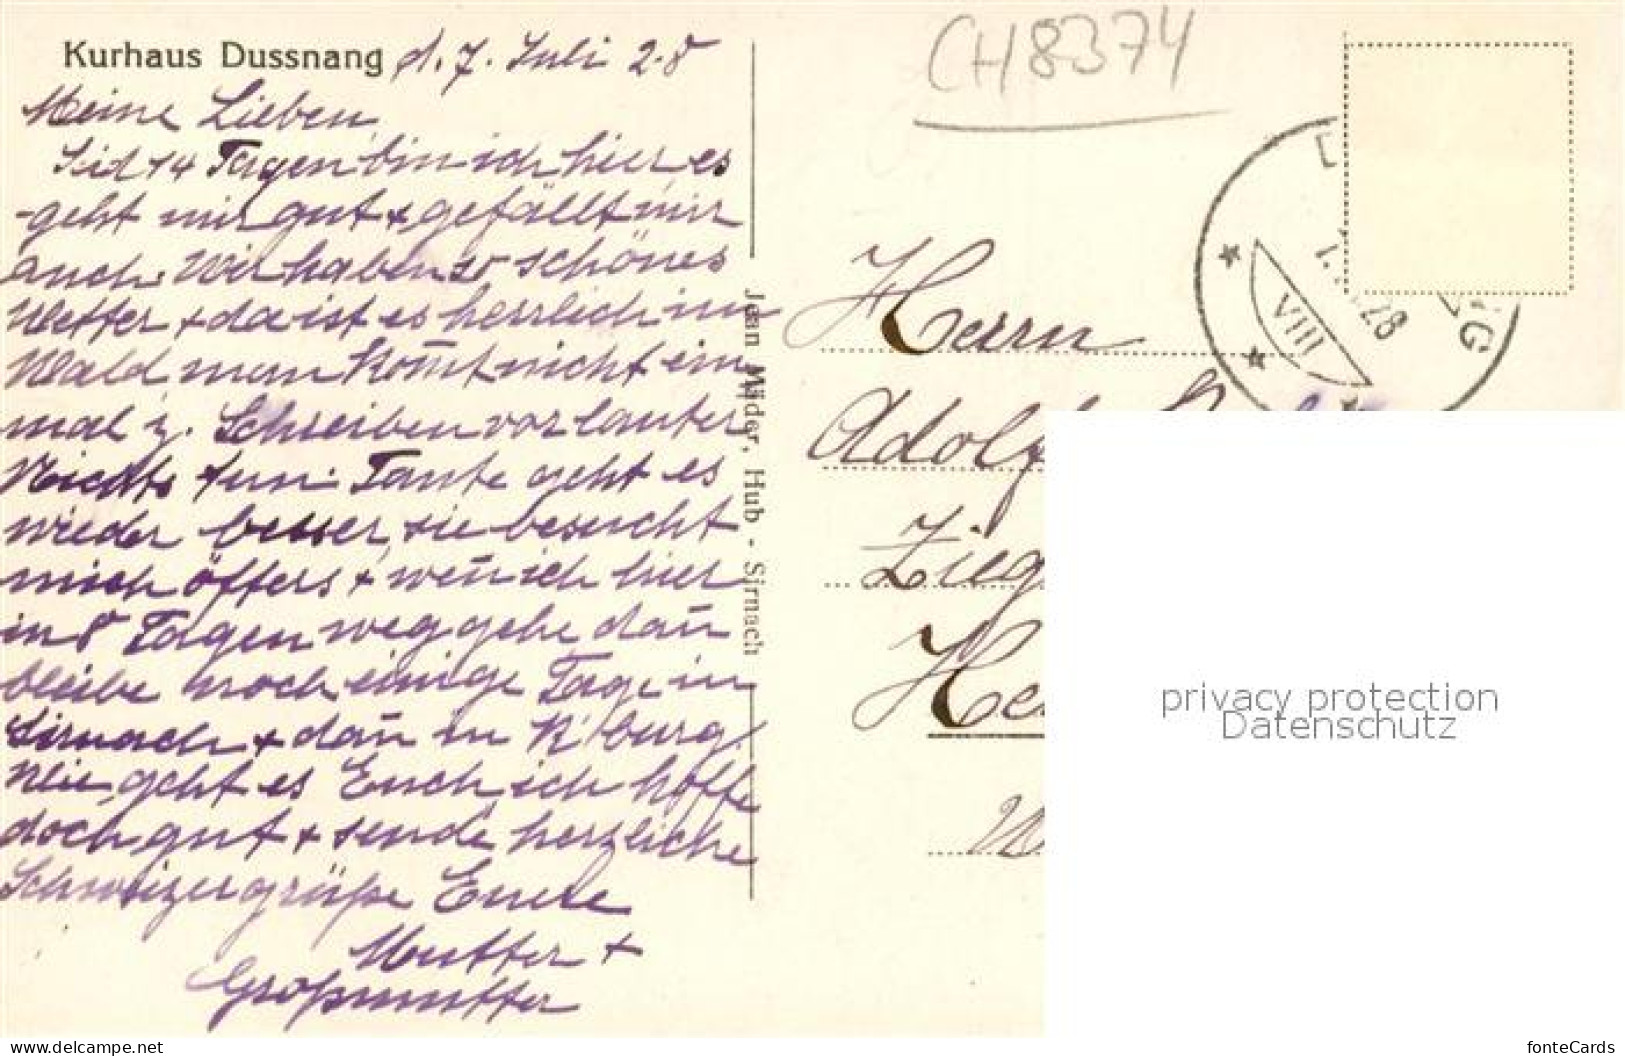 Kurhaus Dussnang d. 7. Juli 28
Meine Lieben,
Seid 14 Tagen bin ich hier es
geht mir gut + gefällt mir
auch. Wir haben so schönes
Wetter + da ist es herrlich im
Wald man kom̄t nicht ein
mal z. Schreiben vor lauter
Nichts tun. Tante geht es
wieder besser, sie besucht
mich öffters + wen̄ ich hier
in 8 Tagen weg gehe dan̄
bleibe noch einige Tage in
Sirnach + dan̄ in K'burg.
Wie geht es Euch ich hoffe
doch gut + sende herzliche
Schweizergrüße Euere
Mutter +
Großmutter
Jean Mäder, Hub - Sirnach
CH8374
VIII
28
NG
Herrn
Adolf
Zieg
He
privacy protection
Datenschutz
www.delcampe.net
fonteCards